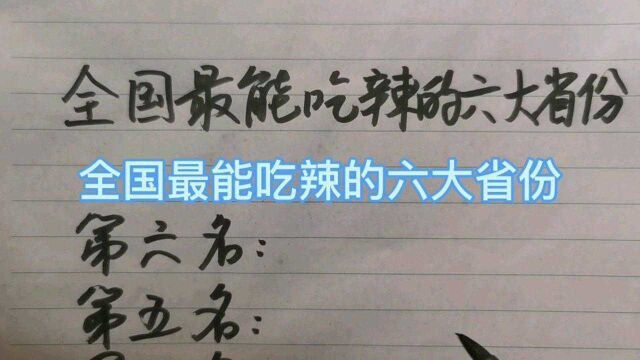 全国最能吃辣的六大省份
全国最能吃辣的六大省份
第六名：
第五名：